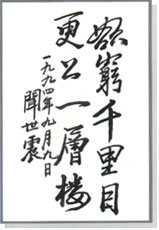 欲窮千里目
更上一層楼
一九九四年九月九日
聞世震